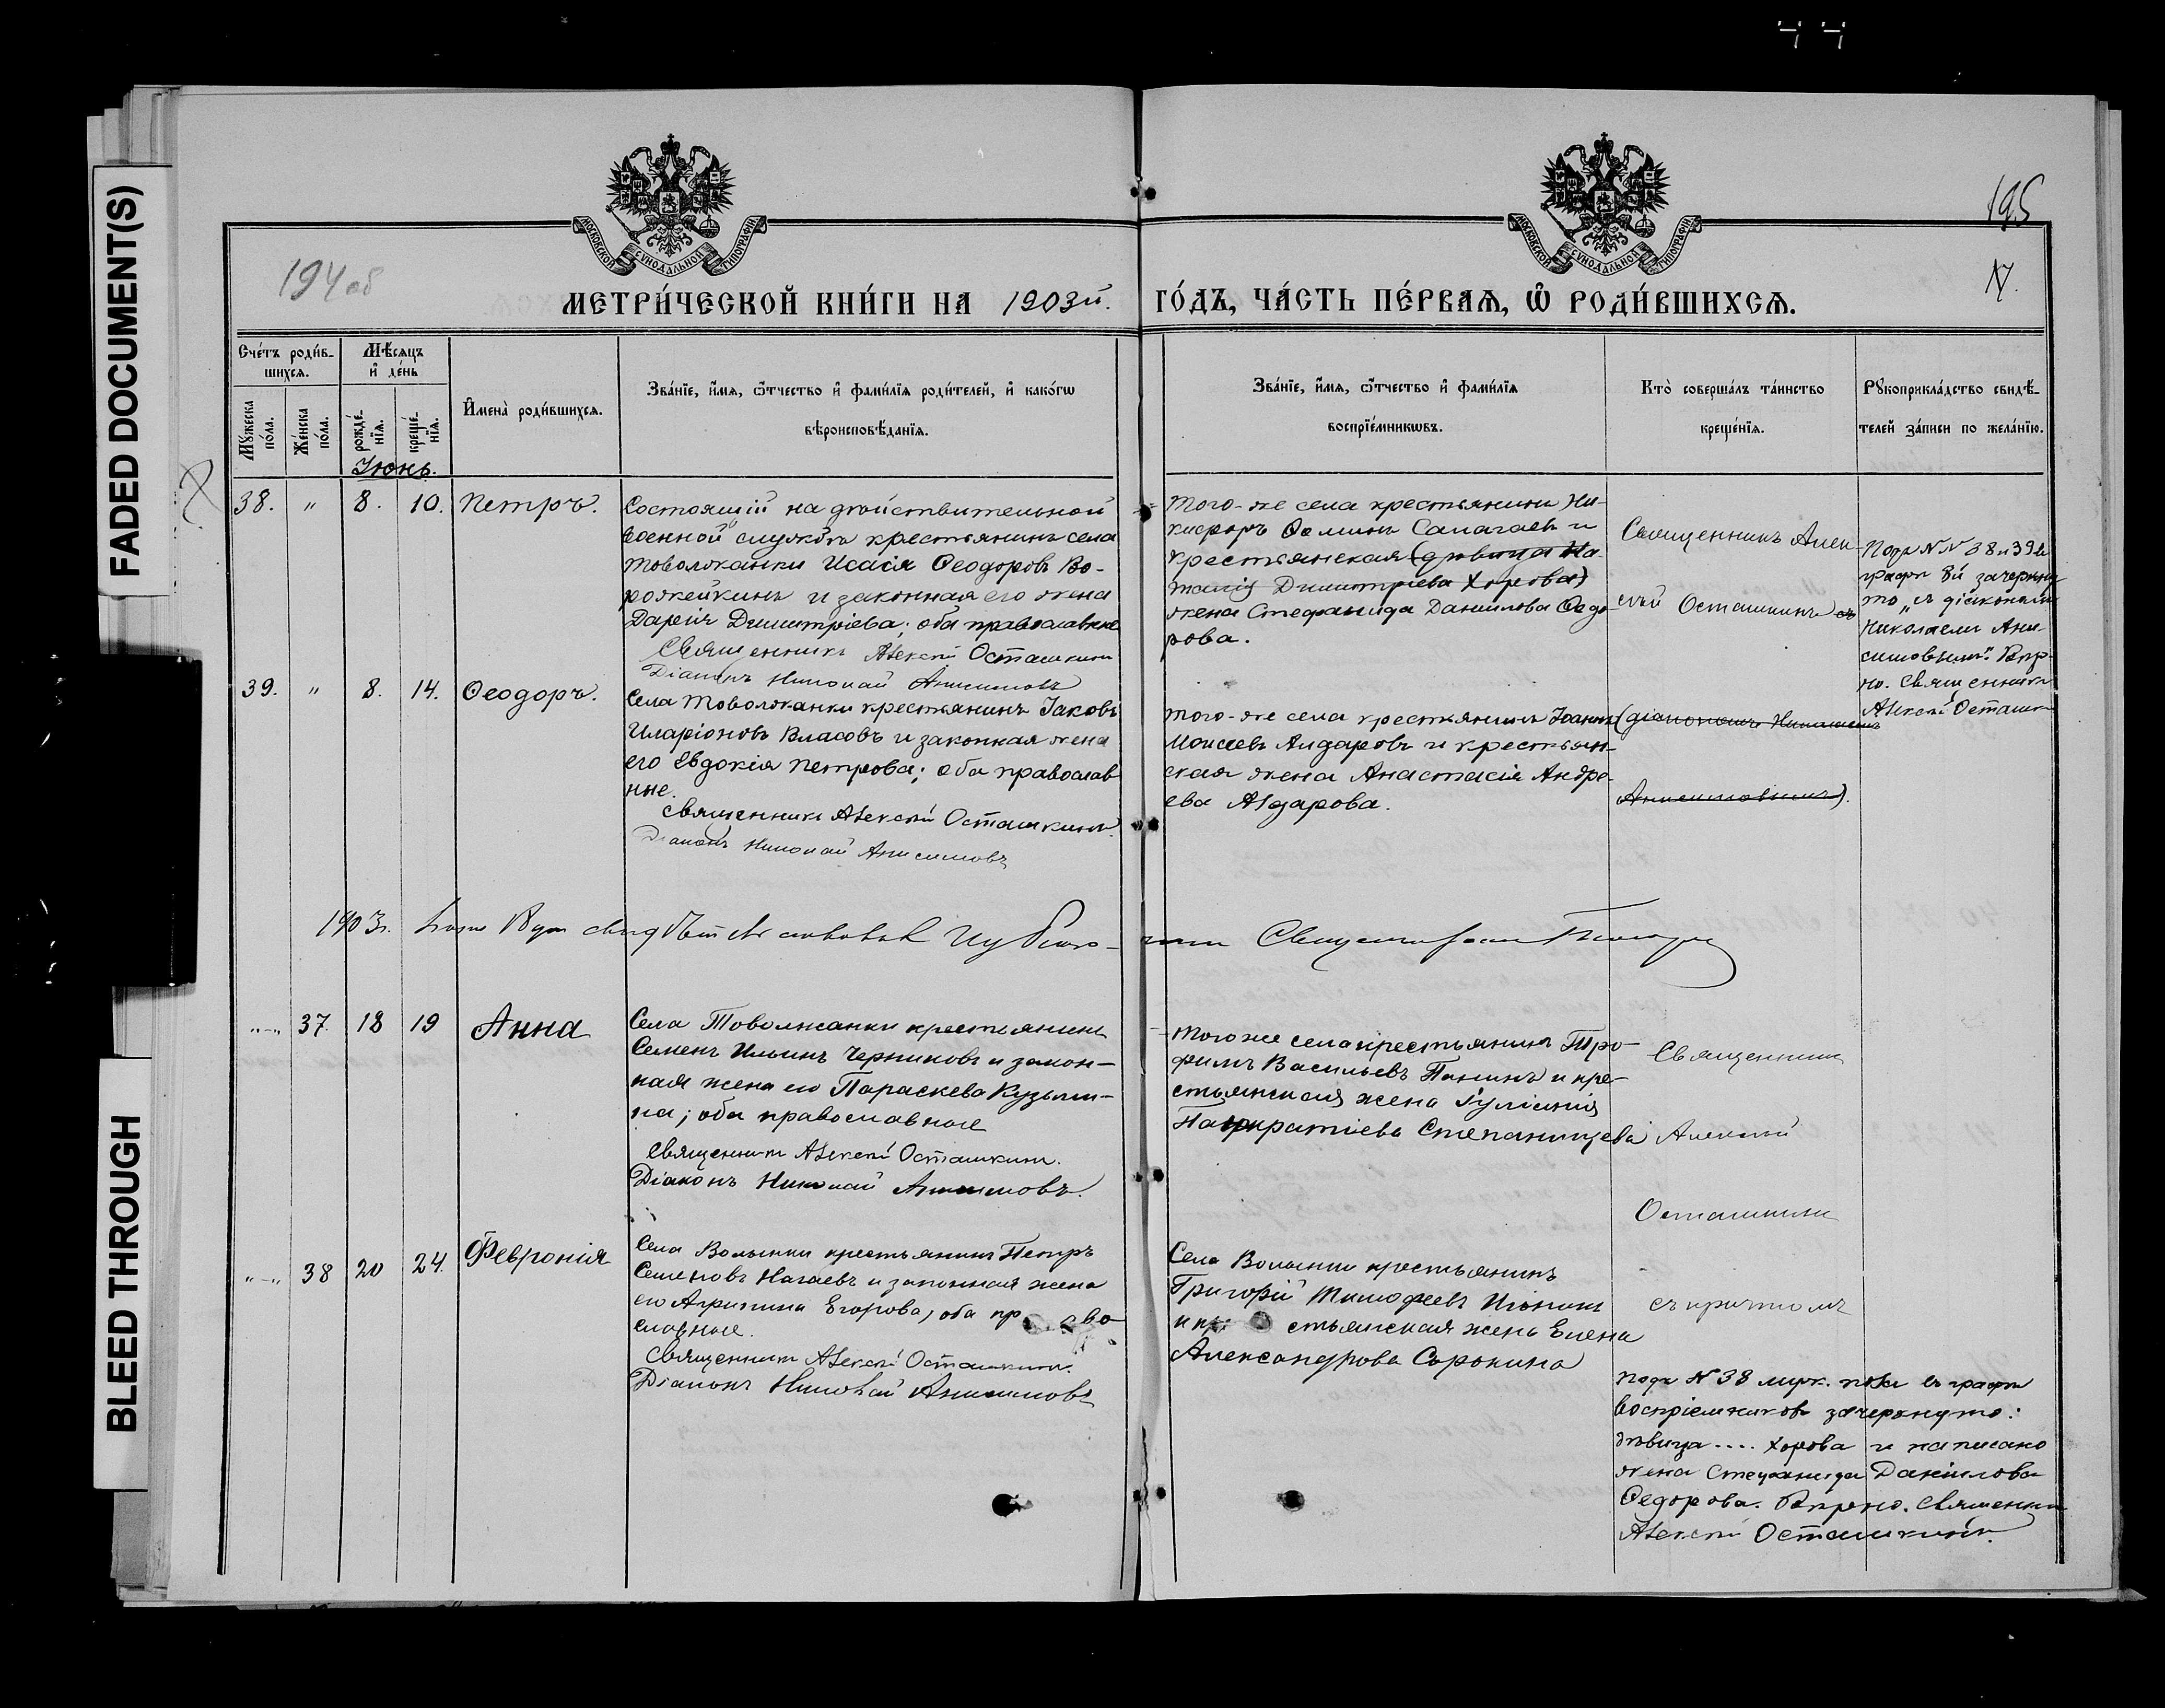 FADED DOCUMENT(S)
BLEED THROUGH
194 об
195
МОСКОВСКОЙ СѴНОДАЛЬНОЙ ТИПОГРАФІИ
МОСКОВСКОЙ СѴНОДАЛЬНОЙ ТИПОГРАФІИ
МЕТРИ́ЧЕСКОЙ КНИ́ГИ НА 1903й.
ГО́ДЪ, ЧА́СТЬ ПЕ́РВАѦ, Ѿ РОДИ́ВШИХСѦ.
Сче́тъ роди́в-
шихсѧ.
Мꙋ́жеска по́ла.
Же́нска по́ла.
Мѣ́сѧцъ
и҆ де́нь
рожде́-
нїѧ.
креще́-
нїѧ.
И҆мена̀ роди́вшихсѧ.
Зва́нїе, и҆́мѧ, ѻ҆́тчество и҆ фами́лїѧ роди́телей, и҆ како́гѡ
вѣроисповѣ́данїѧ.
Зва́нїе, и҆́мѧ, ѻ҆́тчество и҆ фами́лїѧ
воспрїе́мникѡвъ.
Кто̀ соверша́лъ та́инство
креще́нїѧ.
Рꙋкоприкла́дство свидѣ́-
телей за́писи по жела́нїю.
Іюнь.
38. " 8. 10. Петръ.
Состоящій на дѣйствительной
военной службѣ крестьянинъ села
Товолжанки Исаія Ѳеодоровъ Во-
рожейкинъ и законная его жена
Дарія Димитріева; оба православные
Священникъ Алексій Осташкинъ
Діаконъ Николай Анисимовъ
Того-же села крестьянинъ Ни-
кифоръ Ѳоминъ Салагаевъ и
крестьянская (дѣвица На-
талія Димитріева Хорова)
жена Стефанида Данилова Ѳедо-
рова.
Священникъ Алек-
сѣй Осташкинъ съ
Подъ NN 38 и 39 въ
графѣ 8й зачеркну-
то „съ діакономъ
Николаемъ Ани-
симовымъ". Вѣр-
но. Священникъ
Алексій Осташк
39. " 8. 14. Ѳеодоръ.
Села Товолжанки крестьянинъ Іаковъ
Иларіоновъ Власовъ и законная жена
его Евдокія Петрова; оба православ
ные.
Священникъ Алексій Осташкинъ.
Діаконъ Николай Анисимовъ
Того-же села крестьянинъ Іоаннъ
Моисеевъ Аидаровъ и крестьян-
ская жена Анастасія Андре-
ева Айдарова.
(діакономъ Николаемъ
Анисимовымъ).
1903г.
Священникъ
"-" 37. 18 19 Анна
Села Товолжанки крестьянинъ
Семенъ Ильинъ Черниковъ и закон-
ная жена его Параскева Кузьми-
на; оба православные
Священникъ Алексій Осташкинъ.
Діаконъ Николай Анисимовъ.
Того же села крестьянинъ Тро-
фимъ Васильевъ Панинъ и кре-
стьянская жена Іуліанія
Панкратіева Степанищева
Священникъ
Алексѣй
Осташкинъ
съ причтомъ
"-" 38 20 24. Февронія
Села Волынки крестьянинъ Петръ
Семеновъ Нагаевъ и законная жена
его Агрипина Егорова, оба пр аво
славные.
Священникъ Алексій Осташкинъ.
Діаконъ Николай Анисимовъ
Села Волынки крестьянинъ
Григорій Тимофеевъ
и кре стьянская жена Елена
Александрова Сорокина
Подъ N 38 муж. пола въ графѣ
воспріемниковъ зачеркнуто:
дѣвица .... Хорова и написано
жена Стефанида Данилова
Ѳедорова. Вѣрно. Священникъ
Алексій Осташкинъ.